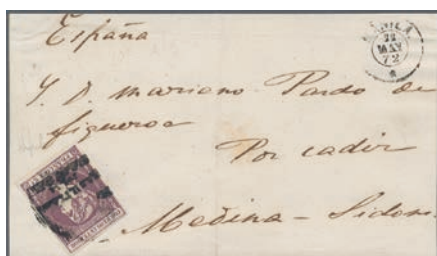 España
MANILA
22
MAY
72
S. D. Mariano Pardo de
figueroa
Por cadiz
Medina-Sidonia